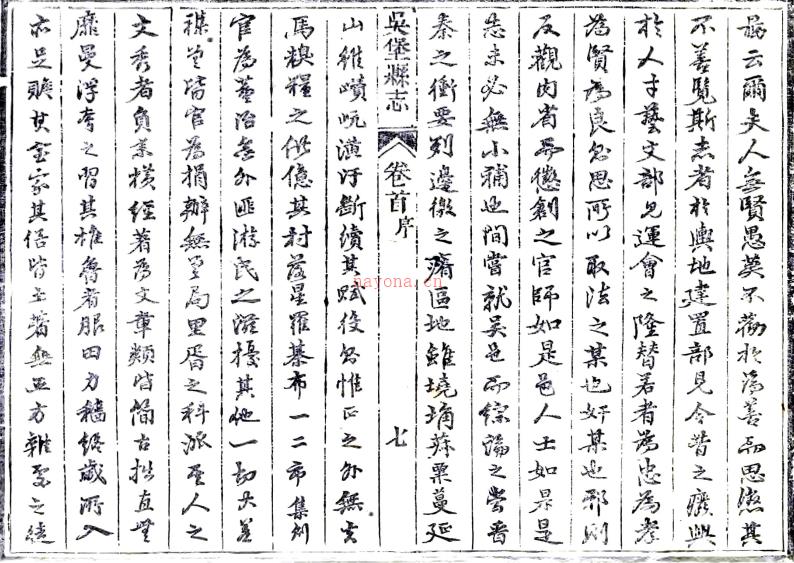 嚴云爾夫人無賢愚莫不勸於為善而思懲其
不善覽斯志者於輿地建置部見今昔之廢興
於人才藝文部見運會之隆替若者為忠為孝
為賢為良當思所以取法之某也奸某也邪則
反觀內省而懲創之官師如是邑人士如是是
志未必無小補也間嘗就吳邑而綜論之當晉
秦之衝要列邊徼之瘠區地雖墝埆菽粟蔓延
吳堡縣志
卷首序
七
山雖嶙峋潢汙斷續其賦役則惟正之外無
馬糗糧之供億其村落星羅棊布一二市集則
官為董治無外匪游民之滋擾其他一切大差
襍差皆官為捐辦無里局里胥之科派里人之
文秀者負耒橫經著為文章類皆簡古拙直無
靡曼浮夸之習其椎魯者服田力穡終歲所入
亦足贍其室家其俗皆土著無五方雜處之
nayona.cn